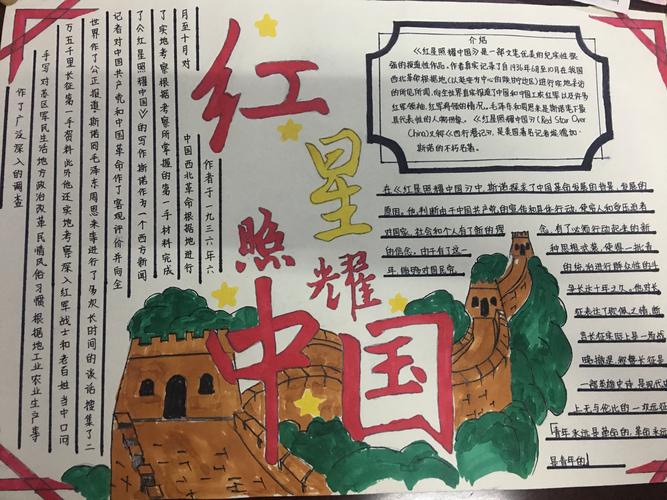 红
星
照
耀
中
国
介绍
《红星照耀中国》是一部文笔优美的纪实性很
强的报道性作品。作者真实记录了自1936年6月至10月在我国
西北革命根据地(以延安为中心的陕甘宁边区)进行实地采访
的所见所闻,向全世界真实报道了中国和中国工农红军以及许多
红军领袖、红军将领的情况。毛泽东和周恩来是斯诺笔下最
具代表性的人物形象。《红星照耀中国》(Red Star Over
China)又称《西行漫记》,是美国著名记者埃德加·
斯诺的不朽名著。
作者于一九三六年六
月至十月对
中国西北革命根据地进行
了实地考察根据考察所掌握的第一手材料完成
了《红星照耀中国》的写作斯诺作为一个西方新闻
记者对中国共产党和中国革命作了客观评价并向全
世界作了公正报道斯诺同毛泽东周恩来等进行了多次长时间的谈话搜集了二
万五千里长征第一手资料此外他还实地考察深入红军战士和老百姓当中口问
手写对苏区军民生活地方政治改革民情风俗习惯根据地工业农业生产等
作了广泛深入的调查
在《红星照耀中国》中,斯诺探求了中国革命发生的背景、发展的
原因。他判断由于中国共产党的宣传和具体行动,使穷人和受压迫者
对国家、社会和个人有了新的理念,有了必须行动起来的新
的信念。由于有了这一种思想武装,使得一批青
年,能够对国民党的统治进行群众性的斗
争长达十年之久。他对长
征表达了钦佩之情,断
言长征实际上是一场战
略撤退,称赞长征是
一部英雄史诗,是现代史
上无与伦比的一次远征
「青年永远是革命的,革命永远
是青年的」